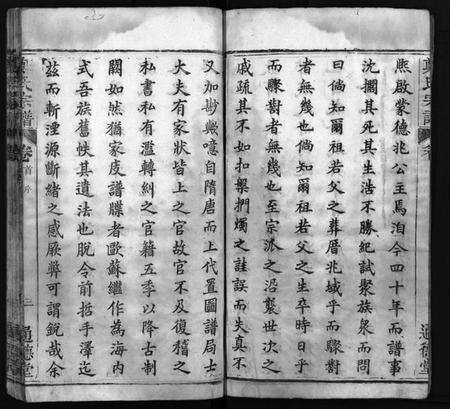 熈啟蒙德兆公主馬洎今四十年而譜事
沈擱其死其生浩不勝紀試聚族衆而問
曰倘知爾祖若父之葬厝兆域乎而驟對
者無幾也倘知爾祖若父之生卒時日乎
而驟對者無幾也至宗派之沿襲世次之
戚疏其不如扣槃捫燭之詿誤而失真不
又加尠歟噫自隋唐而上代置圖局士
大夫有家狀皆上之官故官不及復稽之
私書私有濫轉糾之官籍五季以降古制
闕如然猶家庋譜牒者歐蘇繼作為海内
式吾族舊帙其遺法也脫令前哲手澤迄
茲而斬湮源斷緒之感厥弊可謂銳哉余
氏宗譜
卷首
通德堂